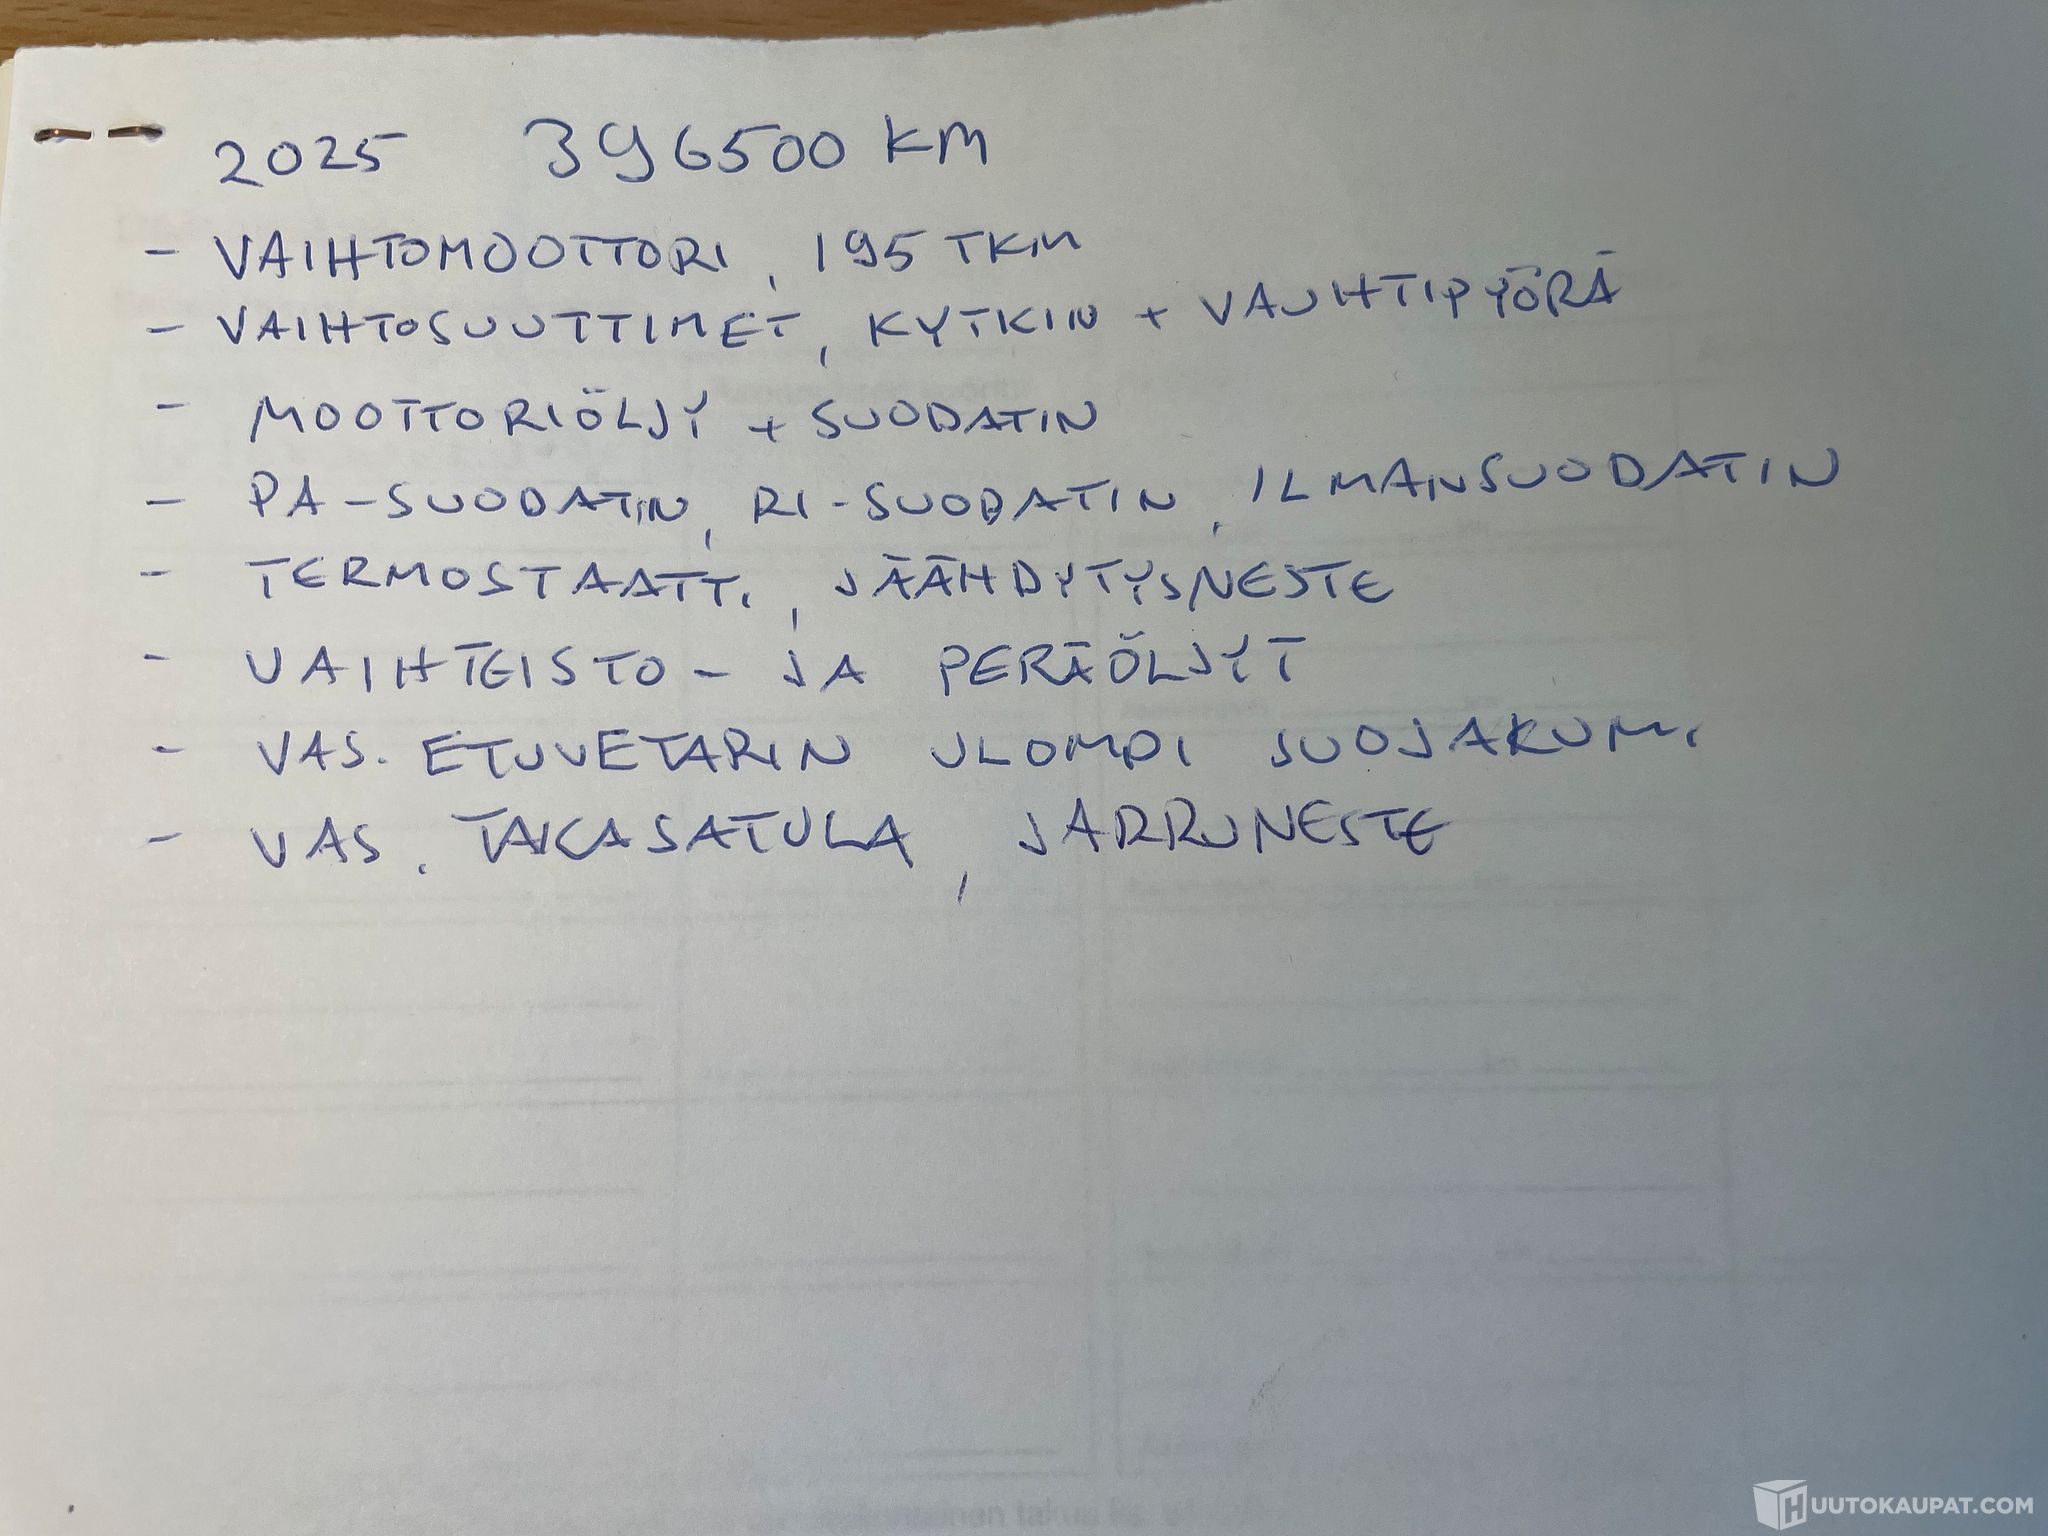 2025 396500 KM
- VAIHTOMOOTTORI, 195 TKM
- VAIHTOSUUTTIMET, KYTKIN + VAUHTIPYÖRÄ
- MOOTTORIÖLJY + SUODATIN
- PA-SUODATIN, RI-SUODATIN, ILMANSUODATIN
- TERMOSTAATTI, JÄÄHDYTYSNESTE
- VAIHTEISTO- JA PERÄÖLJYT
- VAS. ETUVETARIN ULOMPI SUOJAKUMI
- VAS. TAKASATULA, JARRUNESTE
HUUTOKAUPAT.COM